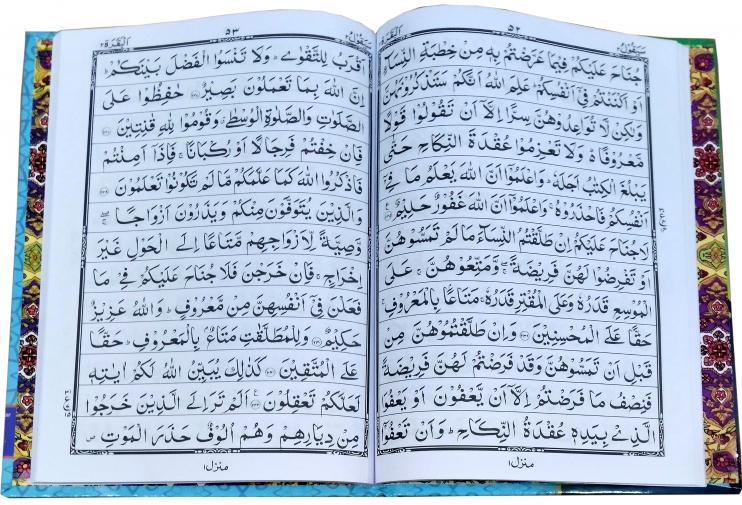 سيقول ٢
٥٢
البقرة ٢
جُنَاحَ عَلَيْكُمْ فِيْمَا عَرَّضْتُمْ بِهٖ مِنْ خِطْبَةِ النِّسَآءِ
اَوْ اَكْنَنْتُمْ فِيْٓ اَنْفُسِكُمْ ؕ عَلِمَ اللّٰهُ اَنَّكُمْ سَتَذْكُرُوْنَهُنَّ
وَلٰكِنْ لَّا تُوَاعِدُوْهُنَّ سِرًّا اِلَّآ اَنْ تَقُوْلُوْا قَوْلًا
مَّعْرُوْفًا ؕ وَلَا تَعْزِمُوْا عُقْدَةَ النِّكَاحِ حَتّٰى
يَبْلُغَ الْكِتٰبُ اَجَلَهٗ ؕ وَاعْلَمُوْٓا اَنَّ اللّٰهَ يَعْلَمُ مَا فِيْٓ
اَنْفُسِكُمْ فَاحْذَرُوْهُ ۚ وَاعْلَمُوْٓا اَنَّ اللّٰهَ غَفُوْرٌ حَلِيْمٌ ﴿٢٣٥﴾
لَا جُنَاحَ عَلَيْكُمْ اِنْ طَلَّقْتُمُ النِّسَآءَ مَا لَمْ تَمَسُّوْهُنَّ
اَوْ تَفْرِضُوْا لَهُنَّ فَرِيْضَةً ۖۚ وَّمَتِّعُوْهُنَّ ۚ عَلَى
الْمُوْسِعِ قَدَرُهٗ وَعَلَى الْمُقْتِرِ قَدَرُهٗ ۚ مَتَاعًاۢ بِالْمَعْرُوْفِ ۚ
حَقًّا عَلَى الْمُحْسِنِيْنَ ﴿٢٣٦﴾ وَاِنْ طَلَّقْتُمُوْهُنَّ مِنْ
قَبْلِ اَنْ تَمَسُّوْهُنَّ وَقَدْ فَرَضْتُمْ لَهُنَّ فَرِيْضَةً
فَنِصْفُ مَا فَرَضْتُمْ اِلَّآ اَنْ يَّعْفُوْنَ اَوْ يَعْفُوَا
الَّذِيْ بِيَدِهٖ عُقْدَةُ النِّكَاحِ ؕ وَاَنْ تَعْفُوْٓا
منزل ١
سيقول ٢
٥٣
البقرة ٢
اَقْرَبُ لِلتَّقْوٰى ؕ وَلَا تَنْسَوُا الْفَضْلَ بَيْنَكُمْ ؕ
اِنَّ اللّٰهَ بِمَا تَعْمَلُوْنَ بَصِيْرٌ ﴿٢٣٧﴾ حٰفِظُوْا عَلَى
الصَّلَوٰتِ وَالصَّلٰوةِ الْوُسْطٰى ۗ وَقُوْمُوْا لِلّٰهِ قٰنِتِيْنَ ﴿٢٣٨﴾
فَاِنْ خِفْتُمْ فَرِجَالًا اَوْ رُكْبَانًا ۚ فَاِذَآ اَمِنْتُمْ
فَاذْكُرُوا اللّٰهَ كَمَا عَلَّمَكُمْ مَّا لَمْ تَكُوْنُوْا تَعْلَمُوْنَ ﴿٢٣٩﴾
وَالَّذِيْنَ يُتَوَفَّوْنَ مِنْكُمْ وَيَذَرُوْنَ اَزْوَاجًا ۖۚ
وَّصِيَّةً لِّاَزْوَاجِهِمْ مَّتَاعًا اِلَى الْحَوْلِ غَيْرَ
اِخْرَاجٍ ۚ فَاِنْ خَرَجْنَ فَلَا جُنَاحَ عَلَيْكُمْ فِيْ مَا
فَعَلْنَ فِيْٓ اَنْفُسِهِنَّ مِنْ مَّعْرُوْفٍ ؕ وَاللّٰهُ عَزِيْزٌ
حَكِيْمٌ ﴿٢٤٠﴾ وَلِلْمُطَلَّقٰتِ مَتَاعٌۢ بِالْمَعْرُوْفِ ؕ حَقًّا
عَلَى الْمُتَّقِيْنَ ﴿٢٤١﴾ كَذٰلِكَ يُبَيِّنُ اللّٰهُ لَكُمْ اٰيٰتِهٖ
لَعَلَّكُمْ تَعْقِلُوْنَ ﴿٢٤٢﴾ اَلَمْ تَرَ اِلَى الَّذِيْنَ خَرَجُوْا
مِنْ دِيَارِهِمْ وَهُمْ اُلُوْفٌ حَذَرَ الْمَوْتِ ۪
منزل ١